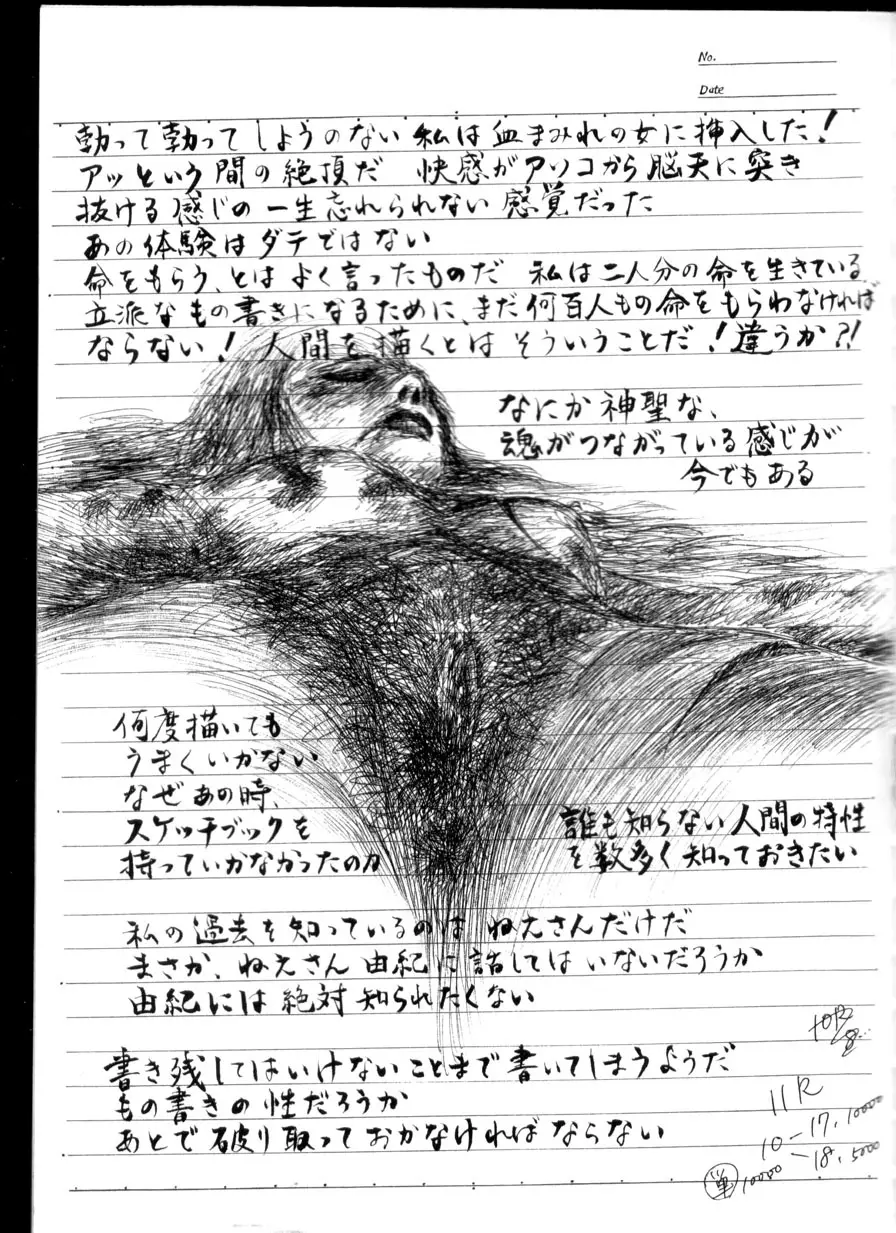 No.
Date
勃って勃ってしようのない 私は血まみれの女に挿入した!
アッという間の絶頂だ 快感がアソコから脳天に突き
抜ける感じの一生忘れられない感覚だった
あの体験はダテではない
命をもらう、とはよく言ったものだ 私は二人分の命を生きている
立派なもの書きになるために、まだ何百人もの命をもらわなければ
ならない! 人間を描くとはそういうことだ!違うか?!
なにか神聖な、
魂がつながっている感じが
今でもある
何度描いても
うまくいかない
なぜあの時、
スケッチブックを
持っていかなかったのか
誰も知らない人間の特性
を数多く知っておきたい
私の過去を知っているのは ねえさんだけだ
まさか、ねえさん 由紀に話してはいないだろうか
由紀には絶対知られたくない
書き残してはいけないことまで書いてしまうようだ
もの書きの性だろうか
あとで破り取っておかなければならない
11R
10-17,10000
-18,5000
単 10000